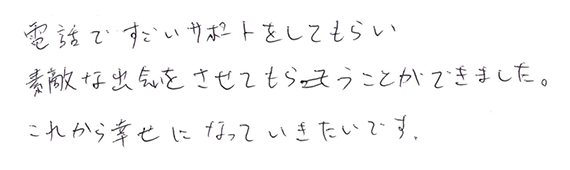 電話ですごいサポートをしてもらい
素敵な出会をさせてもらうことができました。
これから幸せになっていきたいです.